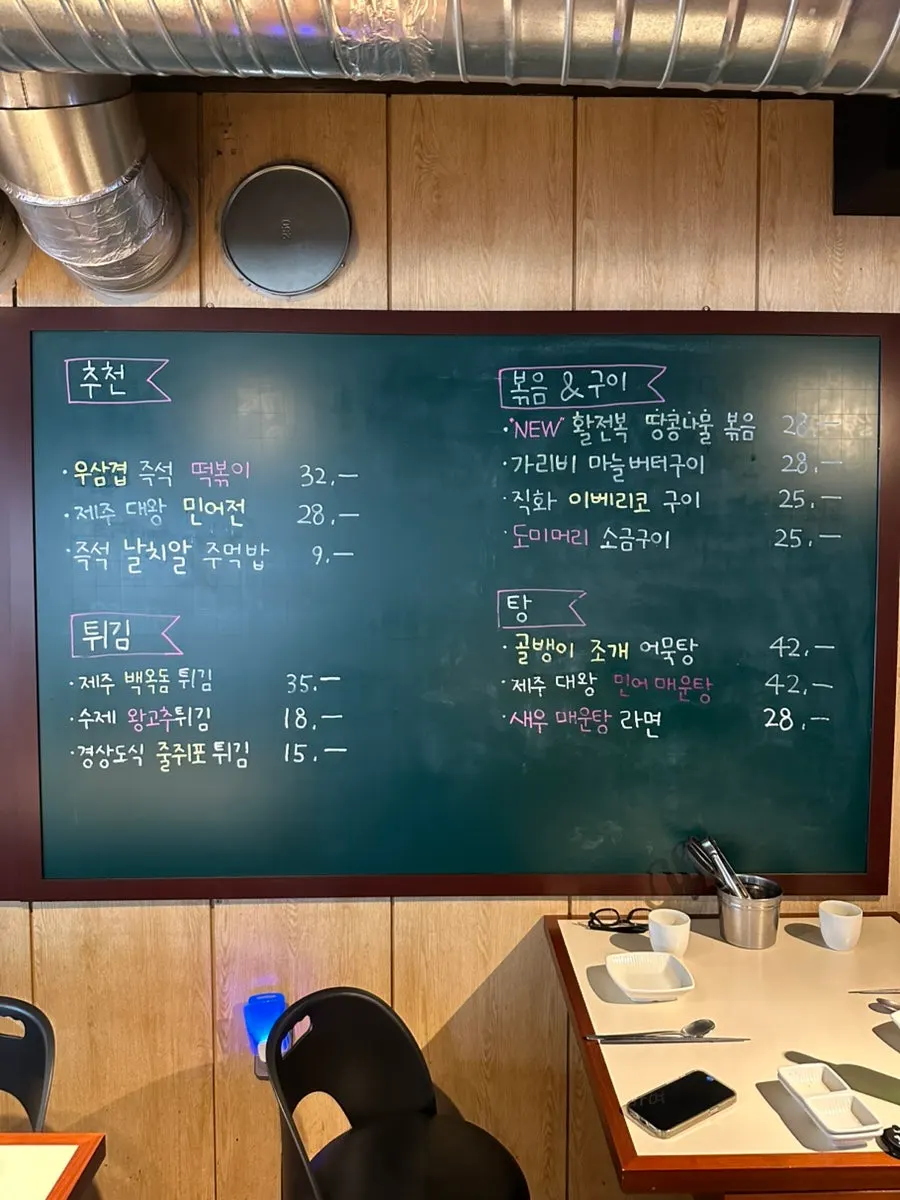 추천
·우삼겹 즉석 떡볶이 32.—
·제주 대왕 민어전 28.—
·즉석 날치알 주먹밥 9.—
튀김
·제주 백옥돔 튀김 35.—
·수제 왕고추튀김 18.—
·경상도식 줄쥐포 튀김 15.—
볶음 & 구이
·"NEW" 활전복 땅콩나물 볶음 28.—
·가리비 마늘버터구이 28.—
·직화 이베리코 구이 25.—
·도미머리 소금구이 25.—
탕
·골뱅이 조개 어묵탕 42.—
·제주 대왕 민어 매운탕 42.—
·새우 매운탕 라면 28.—